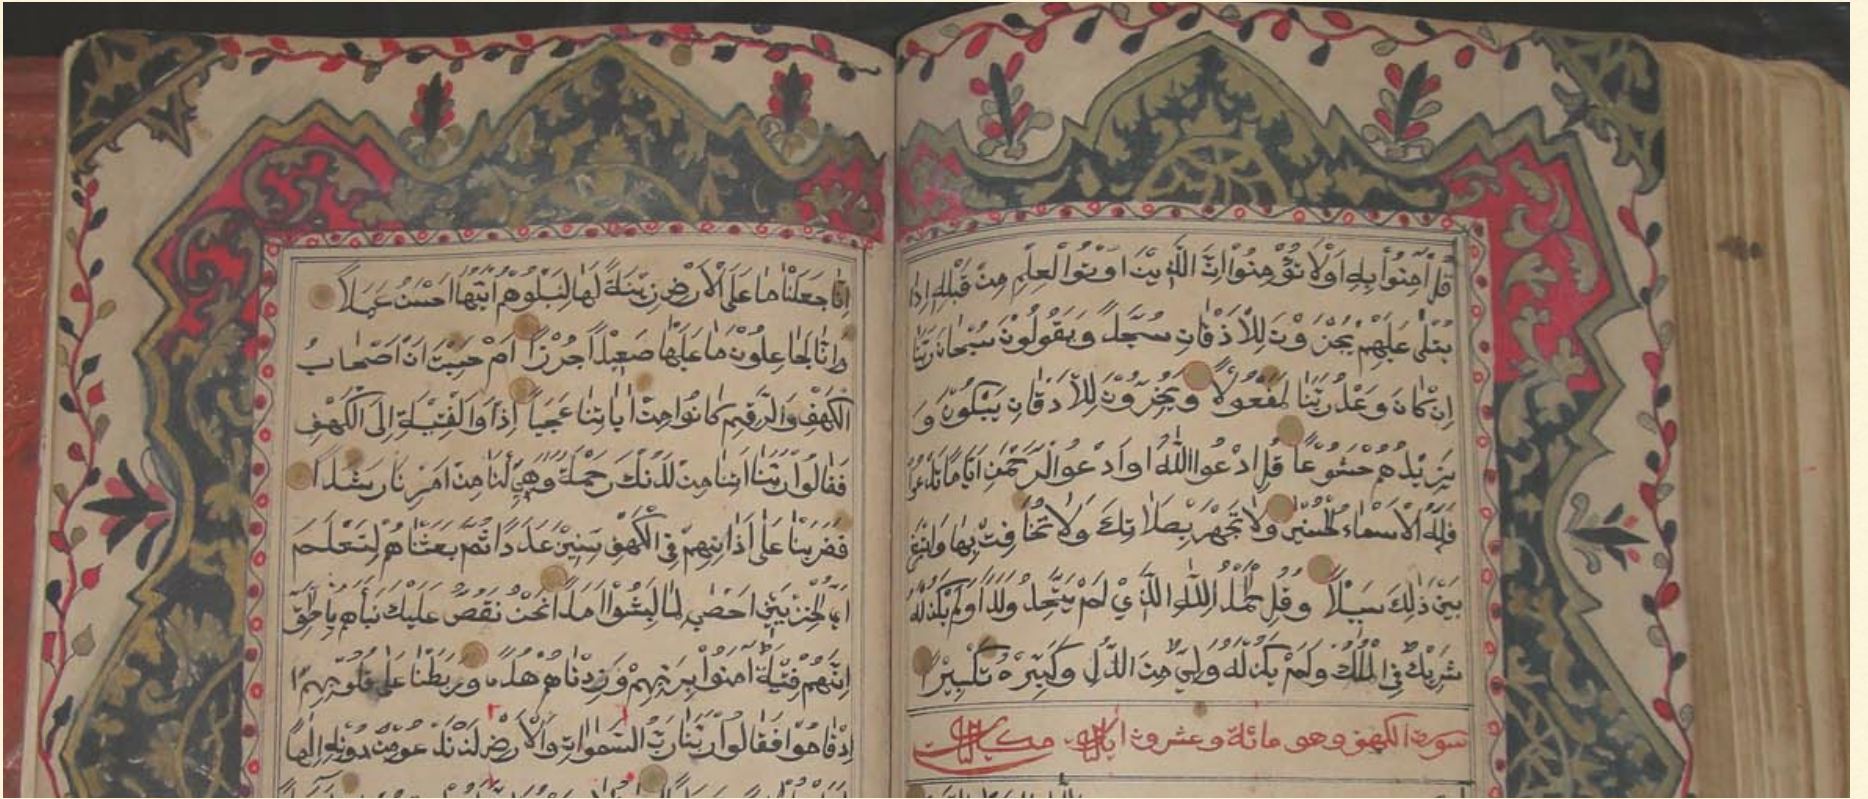 قُلْ اٰمِنُوا بِهِ اَوْ لَا تُؤْمِنُوا اِنَّ الَّذِينَ اُوتُوا الْعِلْمَ مِنْ قَبْلِهِ اِذَا
يُتْلٰى عَلَيْهِمْ يَخِرُّونَ لِلْاَذْقَانِ سُجَّدًا وَيَقُولُونَ سُبْحَانَ رَبِّنَا
اِنْ كَانَ وَعْدُ رَبِّنَا لَمَفْعُولًا وَيَخِرُّونَ لِلْاَذْقَانِ يَبْكُونَ وَ
يَزِيدُهُمْ خُشُوعًا قُلِ ادْعُوا اللّٰهَ اَوِ ادْعُوا الرَّحْمٰنَ اَيًّامَا تَدْعُوا
فَلَهُ الْاَسْمَاءُ الْحُسْنٰى وَلَا تَجْهَرْ بِصَلَاتِكَ وَلَا تُخَافِتْ بِهَا وَابْتَغِ
بَيْنَ ذٰلِكَ سَبِيلًا وَقُلِ الْحَمْدُ لِلّٰهِ الَّذِي لَمْ يَتَّخِذْ وَلَدًا وَلَمْ يَكُنْ لَهُ
شَرِيكٌ فِي الْمُلْكِ وَلَمْ يَكُنْ لَهُ وَلِيٌّ مِنَ الذُّلِّ وَكَبِّرْهُ تَكْبِيرًا
سورة الكهف وهو مائة وعشرون اية مكية
اِنَّا جَعَلْنَا مَا عَلَى الْاَرْضِ زِينَةً لَهَا لِنَبْلُوَهُمْ اَيُّهُمْ اَحْسَنُ عَمَلًا
وَاِنَّا لَجَاعِلُونَ مَا عَلَيْهَا صَعِيدًا جُرُزًا اَمْ حَسِبْتَ اَنَّ اَصْحَابَ
الْكَهْفِ وَالرَّقِيمِ كَانُوا مِنْ اٰيَاتِنَا عَجَبًا اِذْ اَوَى الْفِتْيَةُ اِلَى الْكَهْفِ
فَقَالُوا رَبَّنَا اٰتِنَا مِنْ لَدُنْكَ رَحْمَةً وَهَيِّئْ لَنَا مِنْ اَمْرِنَا رَشَدًا
فَضَرَبْنَا عَلٰى اٰذَانِهِمْ فِي الْكَهْفِ سِنِينَ عَدَدًا ثُمَّ بَعَثْنَاهُمْ لِنَعْلَمَ
اَيُّ الْحِزْبَيْنِ اَحْصٰى لِمَا لَبِثُوا اَمَدًا نَحْنُ نَقُصُّ عَلَيْكَ نَبَأَهُمْ بِالْحَقِّ
اِنَّهُمْ فِتْيَةٌ اٰمَنُوا بِرَبِّهِمْ وَزِدْنَاهُمْ هُدًى وَرَبَطْنَا عَلٰى قُلُوبِهِمْ
اِذْ قَامُوا فَقَالُوا رَبُّنَا رَبُّ السَّمٰوَاتِ وَالْاَرْضِ لَنْ نَدْعُوَ مِنْ دُونِهِ اِلٰهًا